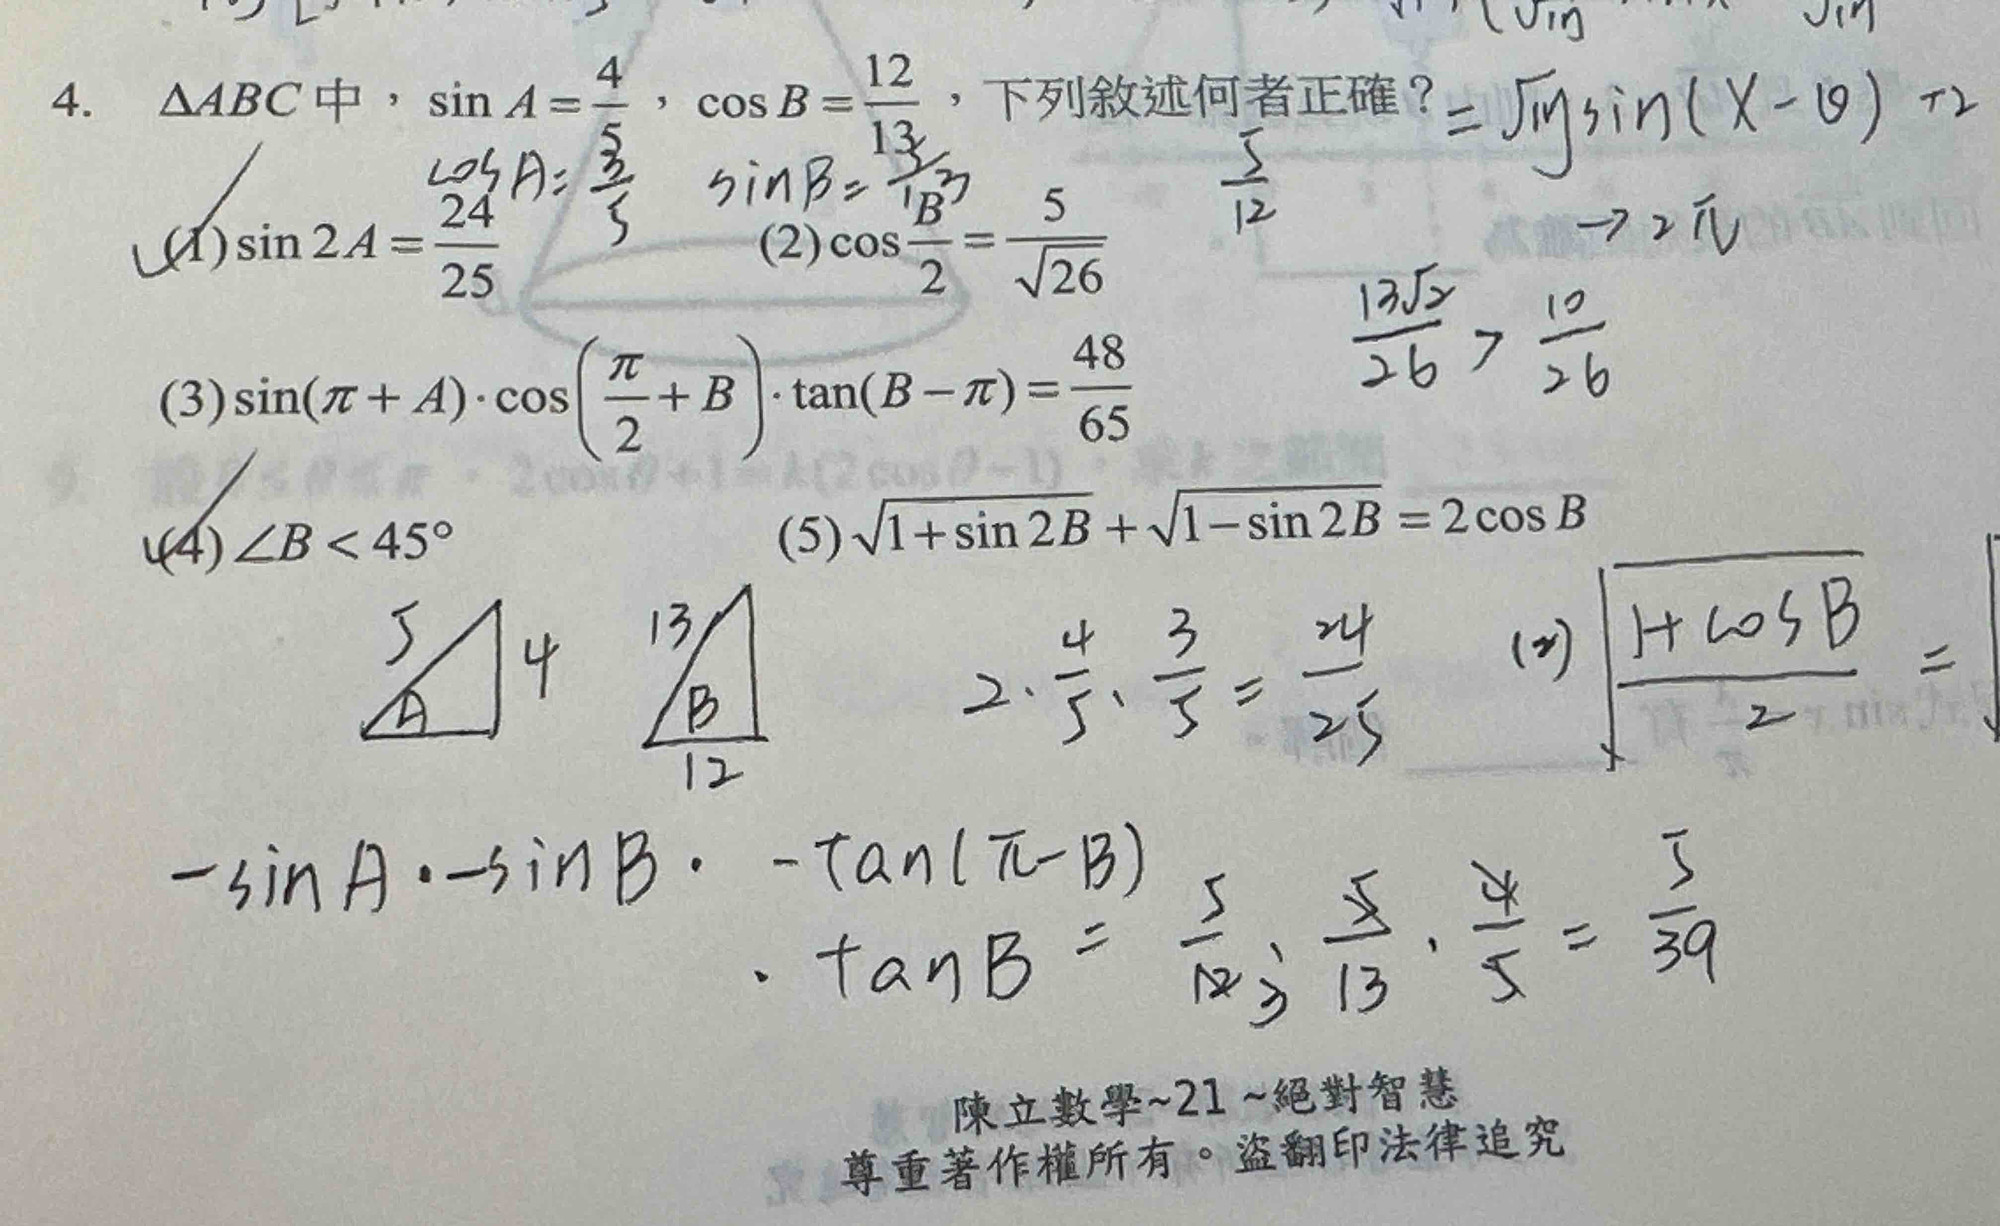 4. ΔABC中，sin A = 4/5，cos B = 12/13，下列敘述何者正確？
= √m sin(X - θ) + 2
cos A = 3/5 sin B = 5/13 5/12
→ 2π
(1) sin 2A = 24/25 (2) cos B/2 = 5/√26
13√2/26 > 10/26
(3) sin(π + A)·cos(π/2 + B)·tan(B − π) = 48/65
(4) ∠B < 45° (5) √(1 + sin 2B) + √(1 − sin 2B) = 2 cos B
5 4 A
13 B 12
2 · 4/5 · 3/5 = 24/25
(2) √((1 + cos B)/2) =
-sin A · -sin B · -tan(π - B)
· tan B = 5/12 3 · 5/13 · 4/5 = 5/39
陳立數學~21~絕對智慧
尊重著作權所有。盜翻印法律追究